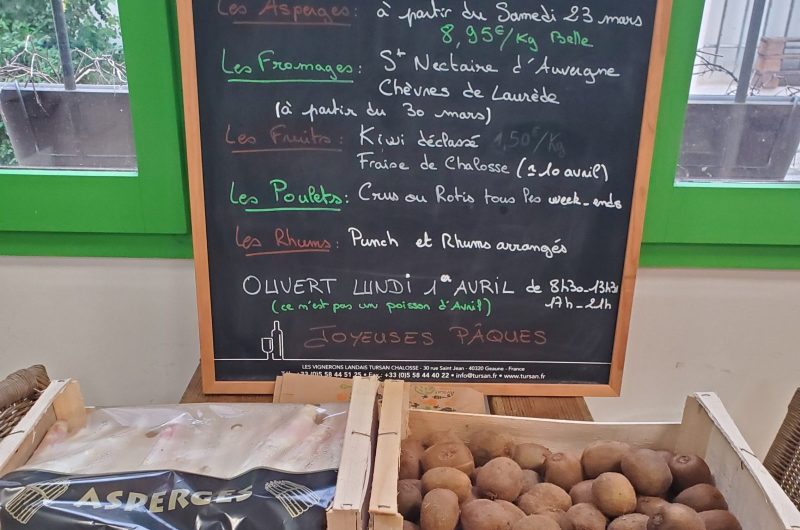 Les Asperges: à partir du Samedi 23 mars
8,95€/Kg Belle
Les Fromages: St Nectaire d'Auvergne
Chèvres de Laurède
(à partir du 30 mars)
Les Fruits: Kiwi déclassé 1,50€/Kg
Fraise de Chalosse (± 10 avril)
Les Poulets: Crus ou Rotis tous les week-ends
Les Rhums: Punch et Rhums arrangés
OUVERT LUNDI 1er AVRIL de 8h30-13h30
(ce n'est pas un poisson d'Avril) 17h-21h
JOYEUSES PÂQUES
LES VIGNERONS LANDAIS TURSAN CHALOSSE - 30 rue Saint Jean - 40320 Geaune - France
Tél. +33 (0)5 58 44 51 25 • Fax : +33 (0)5 58 44 40 22 • info@tursan.fr • www.tursan.fr
ASPERGES